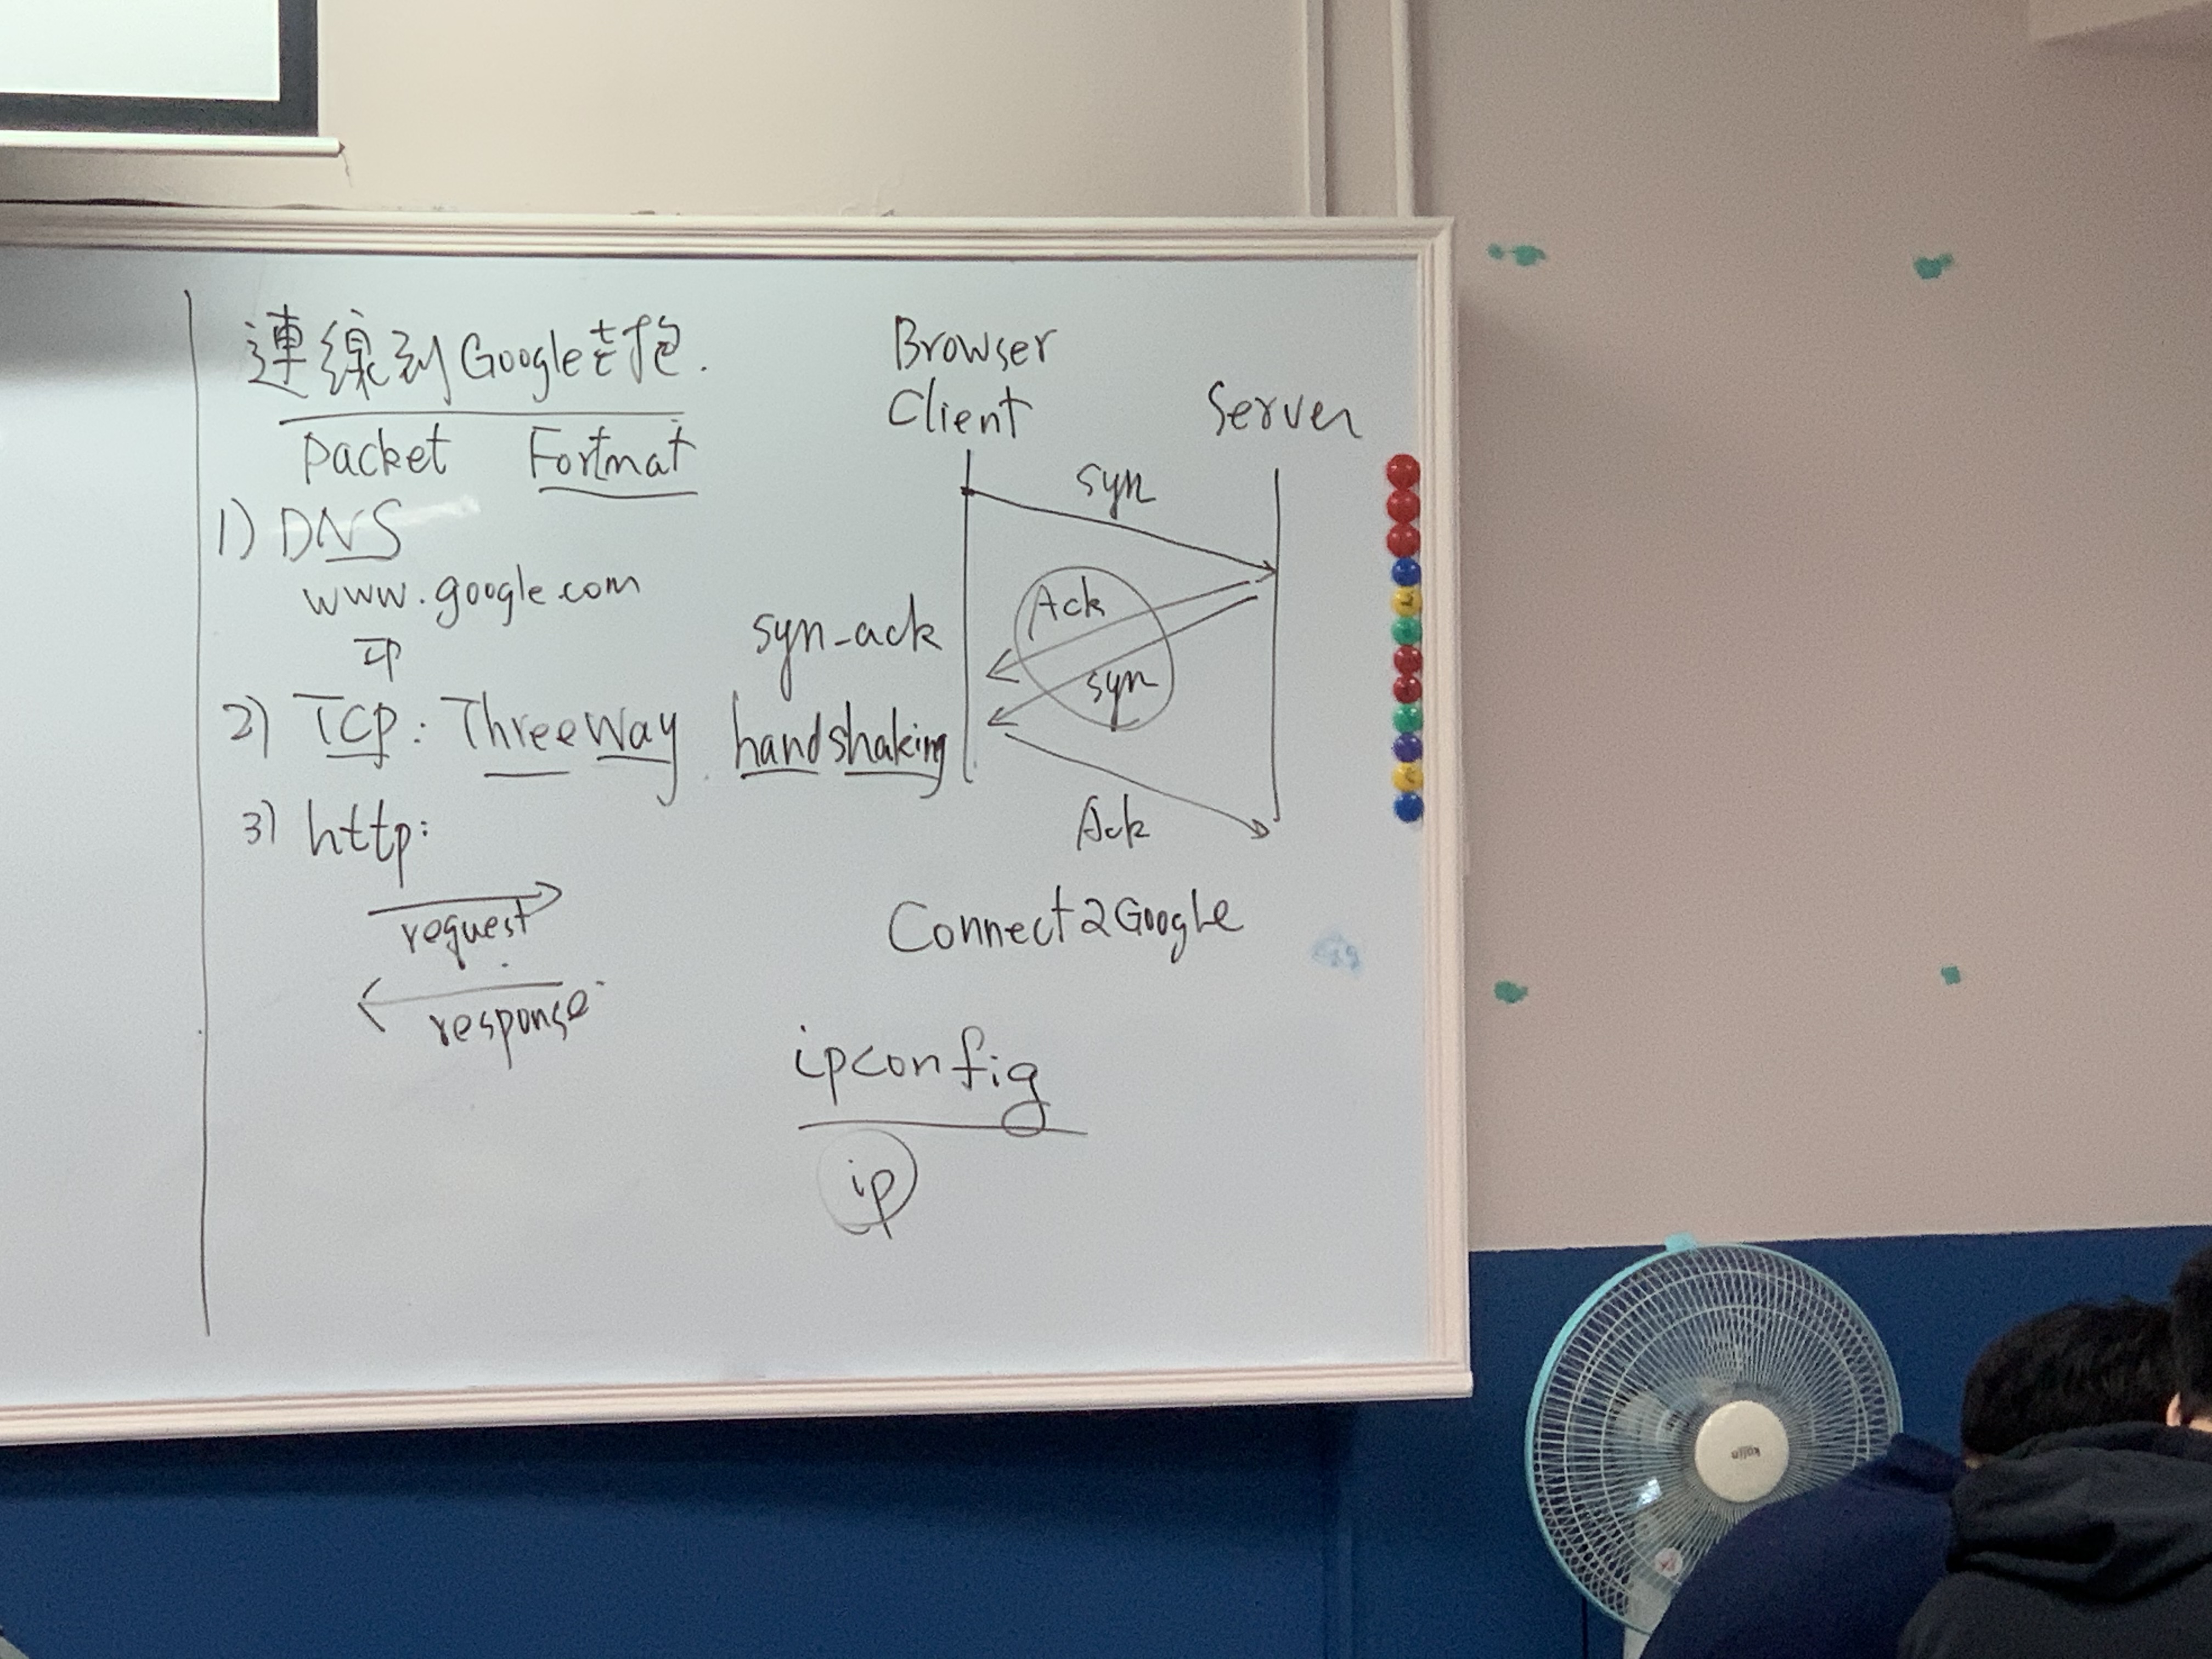 連線到Google去抱.
packet Fortmat
1) DNS
www.google.com
IP
2) TCP: Three Way handshaking
3) http:
request
response
Browser
Client
Server
syn
Ack
syn
syn-ack
Ack
Connect2Google
ipconfig
ip
kolin